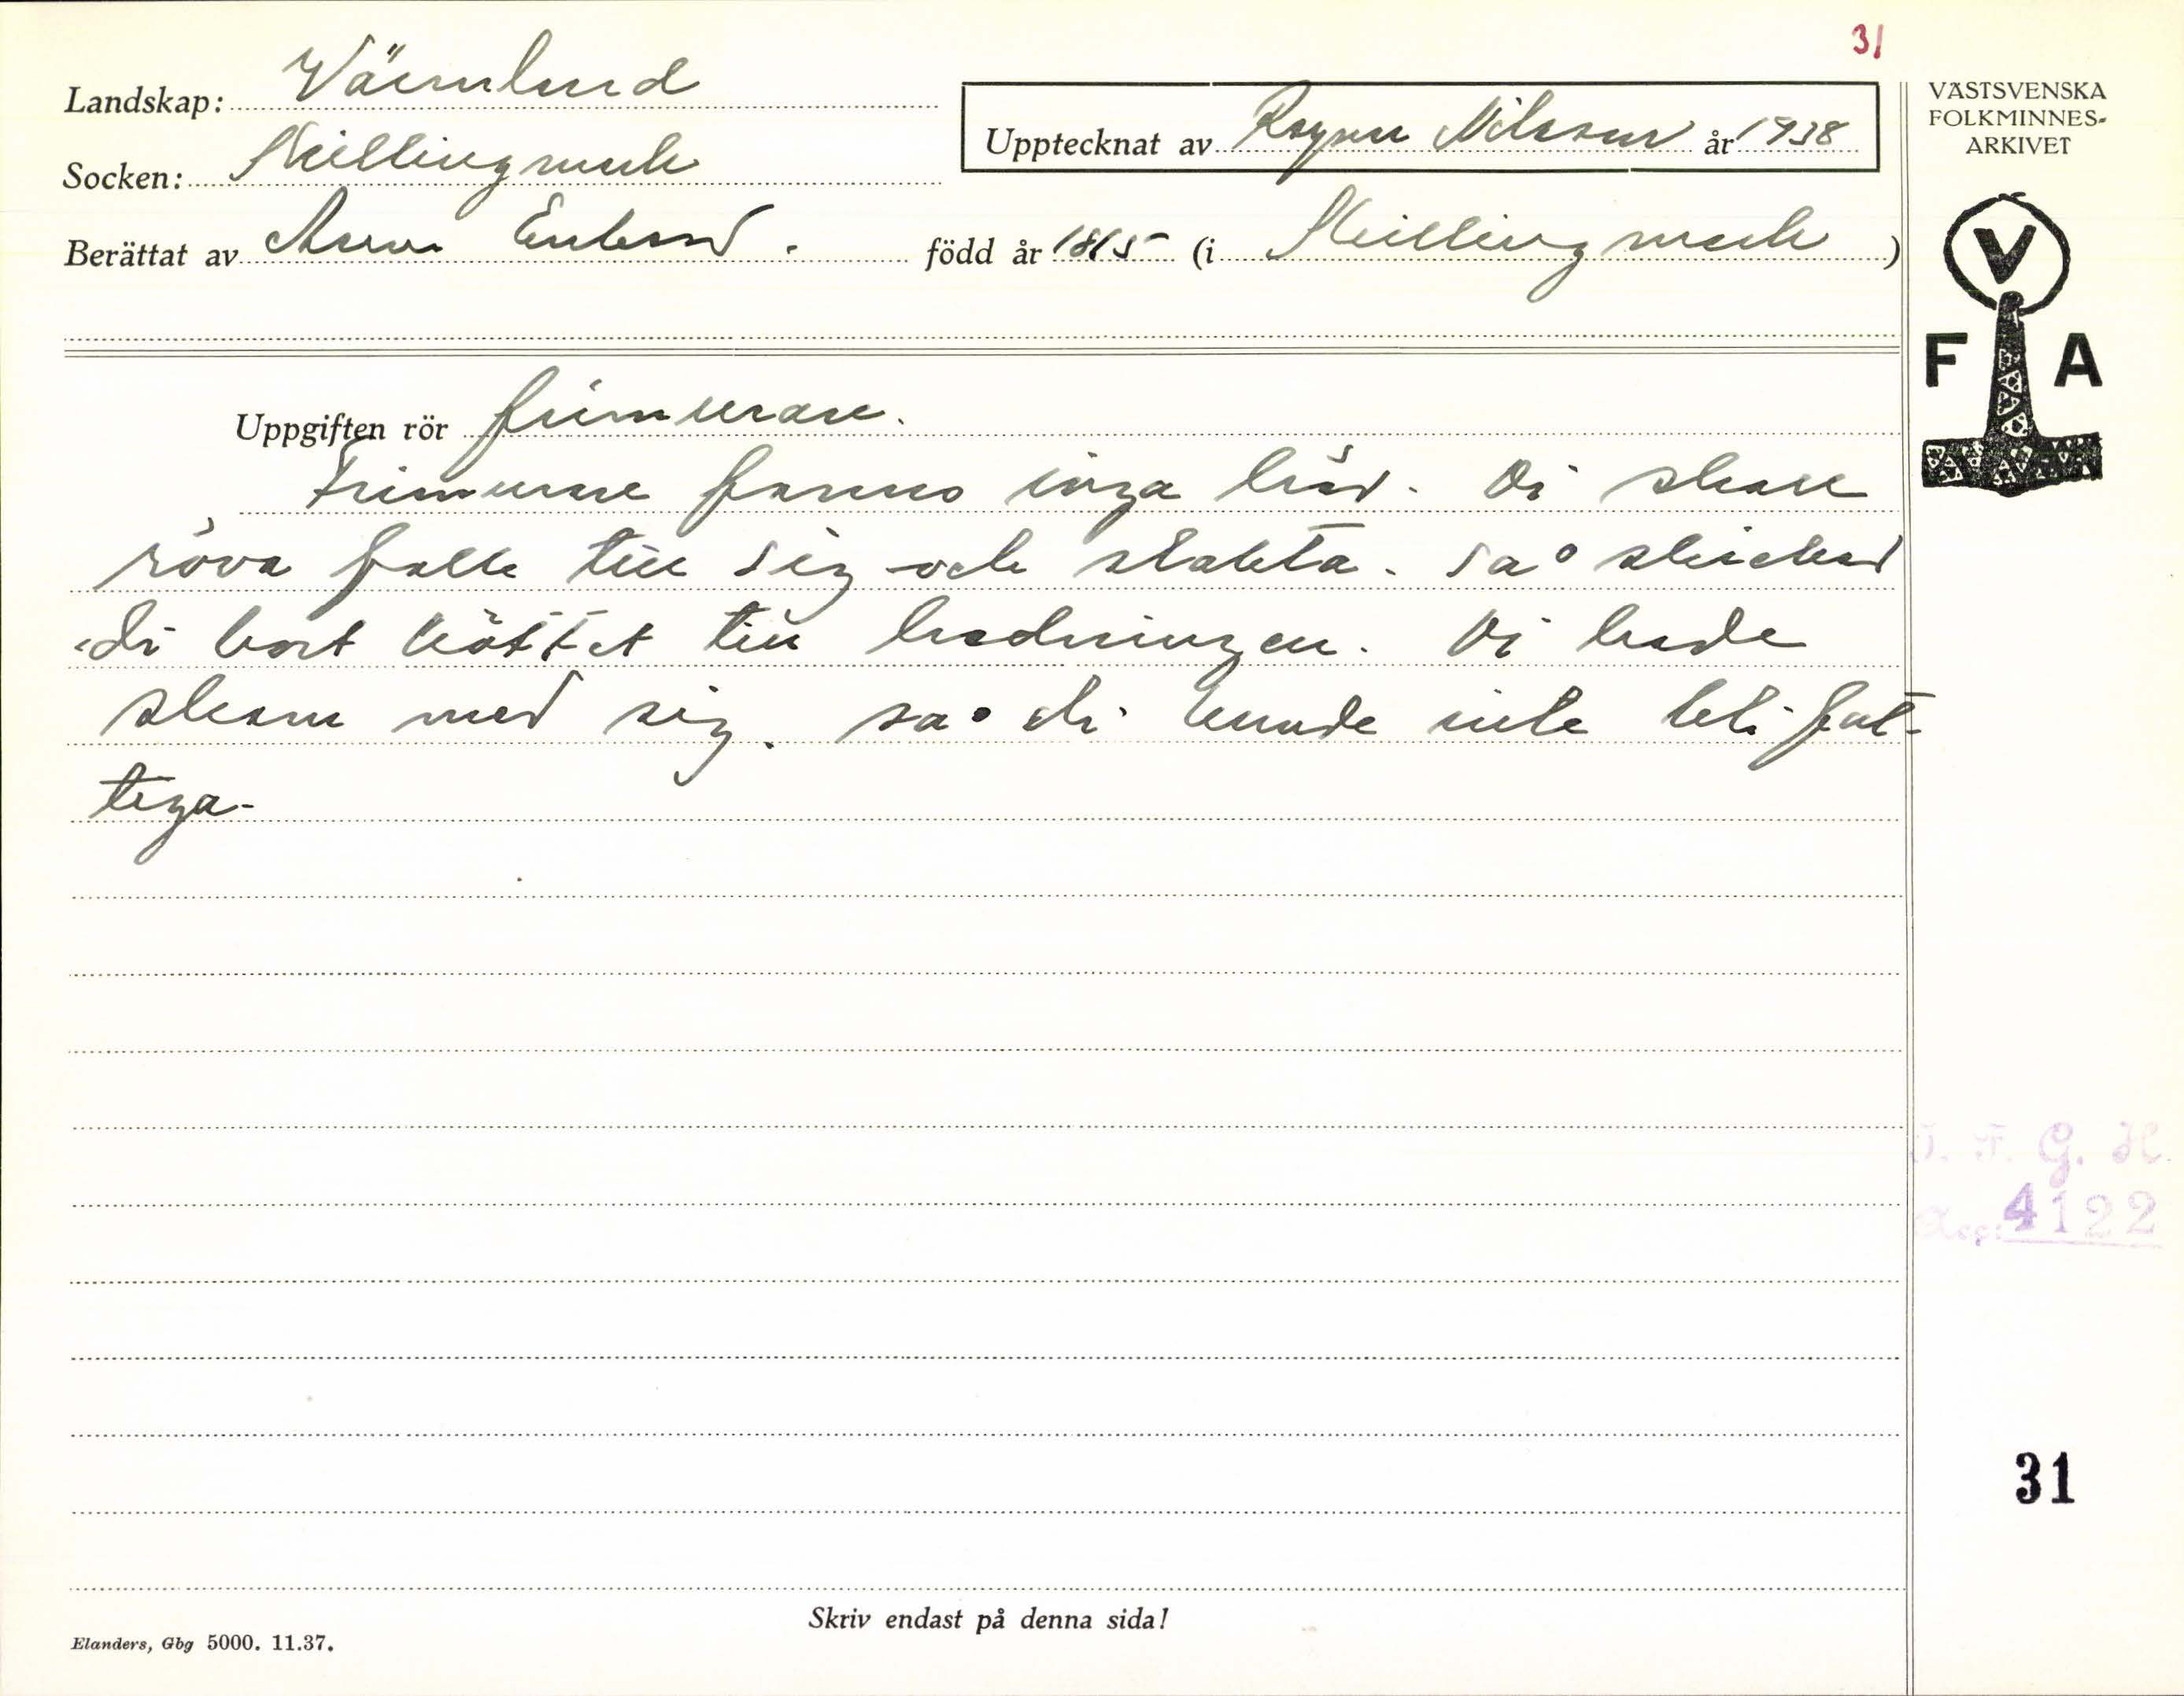 31
Landskap: Värmland
Socken: Skillingmark
Upptecknat av Ragnar Nilsson år 1938
Berättat av Anna född år 1865 (i Skillingmark)
VÄSTSVENSKA
FOLKMINNES-
ARKIVET
V
F A
Uppgiften rör frimurare.
Frimurare fanns inga här. Di skulle
röva folk till sig och slakta. Så skickad
di bort köttet till hedningen. Di hade
skam med sig. så di kunde inte bli fat-
tiga.
I. F. G. H.
Acc: 4122
31
Skriv endast på denna sida!
Elanders, Gbg 5000. 11.37.